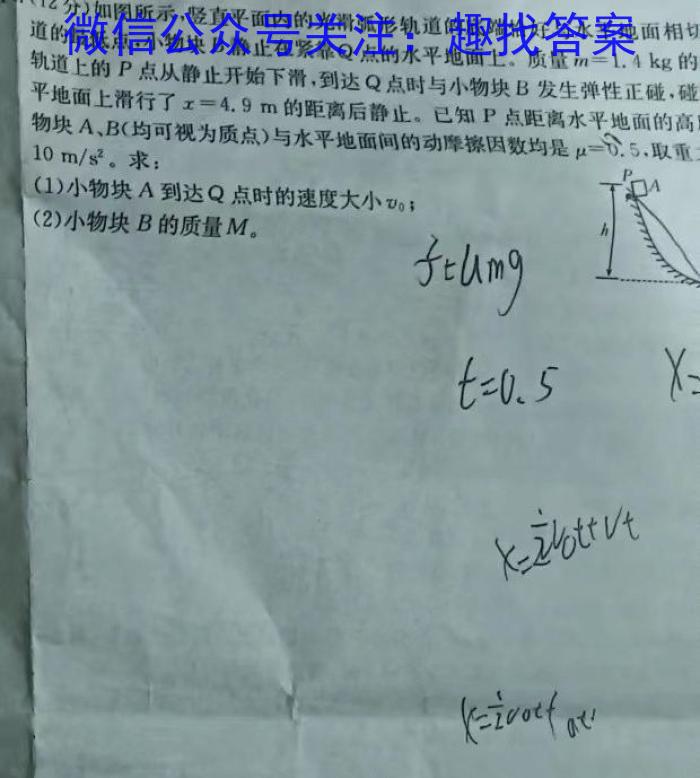 (12分)如图所示,竖直平面内的光滑弧形轨道的 水平地面相切
微信公众号关注:趣找答案
道的 静止在紧靠Q点的水平地面上。质量m=1.4 kg的
轨道上的P点从静止开始下滑,到达Q点时与小物块B发生弹性正碰,碰
平地面上滑行了x=4.9 m的距离后静止。已知P点距离水平地面的高
物块A、B(均可视为质点)与水平地面间的动摩擦因数均是μ=0.5,取重
10 m/s²。求:
(1)小物块A到达Q点时的速度大小v₀;
(2)小物块B的质量M。
P
A
h
f=μmg
t=0.5
X=
x=½v₀t+Vt
x=½v₀t+at